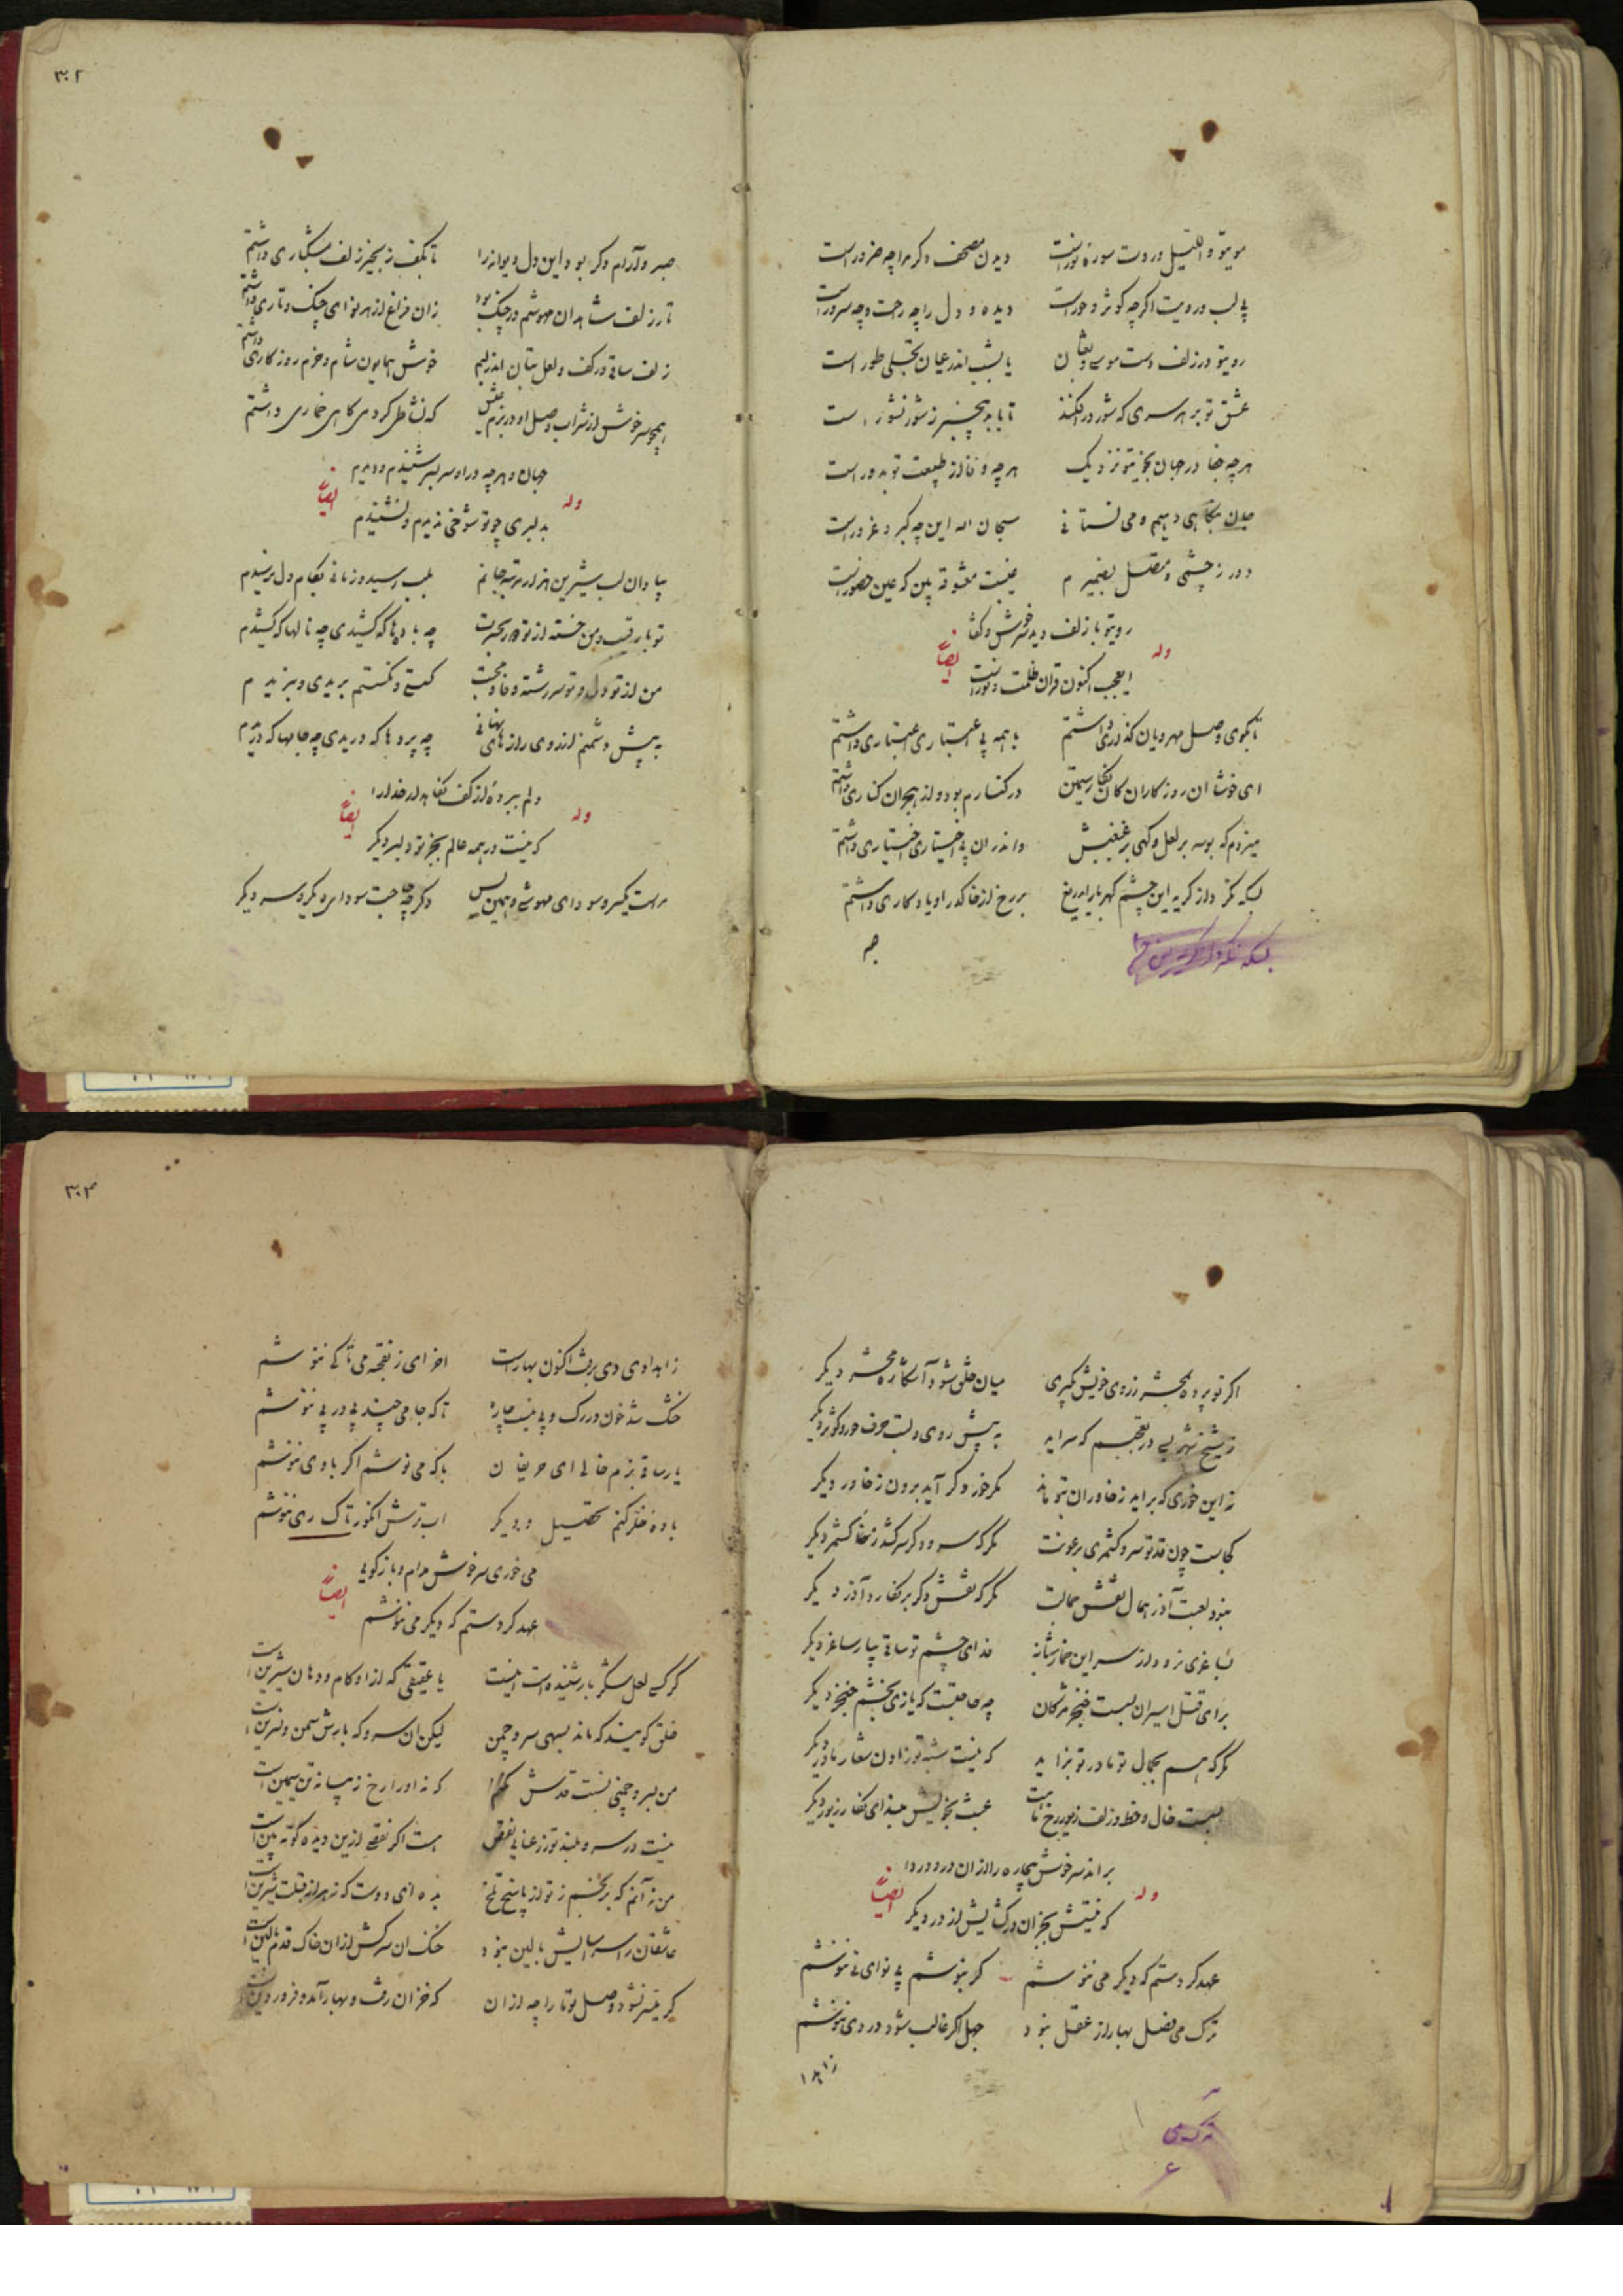 مویتو واللیل و روت سوره نور است    دیدن مصحف دکر مرا چه ضرور است
بی لب و رویت اکرچه کوثر و حور است    دیده و دل را چه راحت و چه سرور است
رویتو در زلف دست موسی و ثعبان    یا بشب اندر عیان تجلی طور است
عشق تو بر هر سری که شور در افکند    تا بابد بیخبر ز شور نشور است
هرچه جفا در جهان بخویتو نزدیک    هرچه وفا از طبیعت تو بدور است
جان بنکاهی دهیم و می نستانی    سبحان الله این چه کبر و غرور است
دور ز چشمی و متصل بضمیرم    غیبت معشوقه بین که عین حضور است
رویتو با زلف دید سرخوش و کفتا
ایعجب اکنون قران ظلمت و نور است
وله ایضاً
تا بکوی وصل مهرویان کذاری داشتم    با همه بی اعتباری اعتباری داشتم
ای خوشا ان روز کاران کان نکار سیمتن    در کنارم بود و از هجران کناری داشتم
میزدم که بوسه بر لعل و کهی بر غبغبش    و اندران بی اختیاری اختیاری داشتم
بسکه نکذارد از کریه این چشم کهر بار ایدریغ    بر رخ از خاک در او یادکاری داشتم
صبر
۳۰۲
صبر و آرام دکر بود این دل دیوانه را    تا بکف زنجیر زلف مشکباری داشتم
تار زلف شاهدان مهوشم در چنک بود    زان فراغ از هر نوای چنک و تاری داشتم
زلف ساقی در کف و لعل بتان اندر لبم    خوش همایون شام و خرم روزکاری داشتم
همچو سرخوش از شراب وصل او در بزم عیش    که نشاطی کردمی کاهی خماری داشتم
جهان و هرچه در او سر بسر شنیدم و دیدم
بدلبری چو تو شوخی ندیدم و نشنیدم
وله ایضاً
بیا دان لب شیرین هزار مرتبه جانم    بلب رسید و زمانی بکام دل نرسیدم
تو با رقیب و من خسته از تو در حسرت    چه باده ها که کشیدی چه نالها که کشیدم
من از تو دل و تو سر رشته وفا و محبت    کسستی و نکسستم بریدی و نبریدم
به پیش دشمنم از روی رازهای نهانی    چه پردها که دریدی چه جامها که دریدم
دلم ببرده از کف نکاهدار خدا را
که نیست در همه عالم بجز تو دلبر دیکر
وله ایضاً
مراست یکسر و سودای مهوشی و همین بس    دکر چه حاجت سودای دیکر و سر دیکر
اکر تو پرده بمحشر ز روی خویش بکیری    میان خلق شود آشکاره محشر دیکر
ز شیخ شهر بسی در تعجبم که سراید    به پیش روی و لبت حرف حور و کوثر دیکر
نه این خوری که براید ز خاوران بتو ماند    مکر خور دکر آید برون ز خاور دیکر
کجاست چون قد تو سرو کشمری برعونت    مکر که سرو دکر سر کشد ز کشمر دیکر
نبود لعبت آذر بمال نقش جمالت    مکر که نقش دکر بر نکارد آذر دیکر
بساغری نرود از سر این خمار شبانه    فدای چشم تو ساقی بیار ساغر دیکر
برای قتل اسیران بس است خنجر مژکان    چه حاجتست که یازی بخشم خنجر دیکر
مکر که هم بجمال تو مادر تو بزاید    که نیست شبه تو زادن شعار مادر دیکر
بس است خال و خط و زلف زیور رخ ماهت    عبث بخویش مبند ای نکار زیور دیکر
براند سرخوش بیچاره را از ان در و دردا
که نیستش بجز ان در کشایش از در دیکر
وله ایضاً
عهد کردستم که دیکر می ننوشم    کر بنوشم بی نوای نی ننوشم
ترک می فصل بهار از عقل نبود    جهل اکر غالب شود در دی ننوشم
زاهدا
ترک می
۳۰۳
زاهدا وی دی برفت اکنون بهار است    اخر ای زن قحبه می تا کی ننوشم
خشک شد خون در رک و پی نیست چاره    تا که جامی چند پی در پی ننوشم
یار ساقی بزم خالی ای حریفان    با که می نوشم اکر با وی ننوشم
باده خلر کنم تحصیل و دیکر    اب ترش انکور تاک ری ننوشم
می خوری سرخوش مدام و باز کوئی
عهد کردستم که دیکر می ننوشم
ایضاً
کر کسی لعل شکر بار شنیده است اینست    یا عقیقی که از او کام و دهان شیرین است
خلق کویند که ماند بسهی سرو چمن    لیکن ان سرو که بارش سمن و نسرین است
من بسرو چمنی نسبت قدش نکنم    که نه او را رخ زیبا نه تن سیمین است
نیست در سرو بلند تو ز رعنایی نقص    هست اکر نقص ازین دیده کوته بین است
من نه آنم که برنجم ز تو از پاسخ تلخ    بده ای دوست که زهر از قبلت شیرین است
عاشقان را سر آسایش بالین نبود    خنک ان سرکش از ان خاک قدم بالین است
کر میسر نشود وصل تو ما را چه از ان    که خزان رفت و بهار آمد و فروردین است